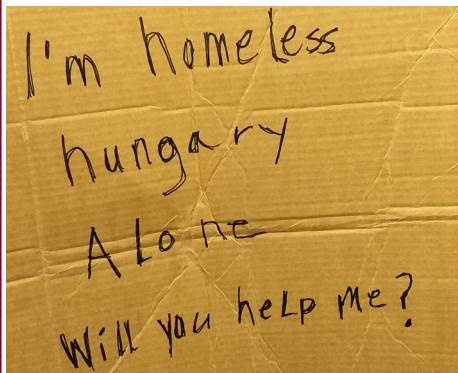 I'm homeless
hungary
Alone
Will you help me?